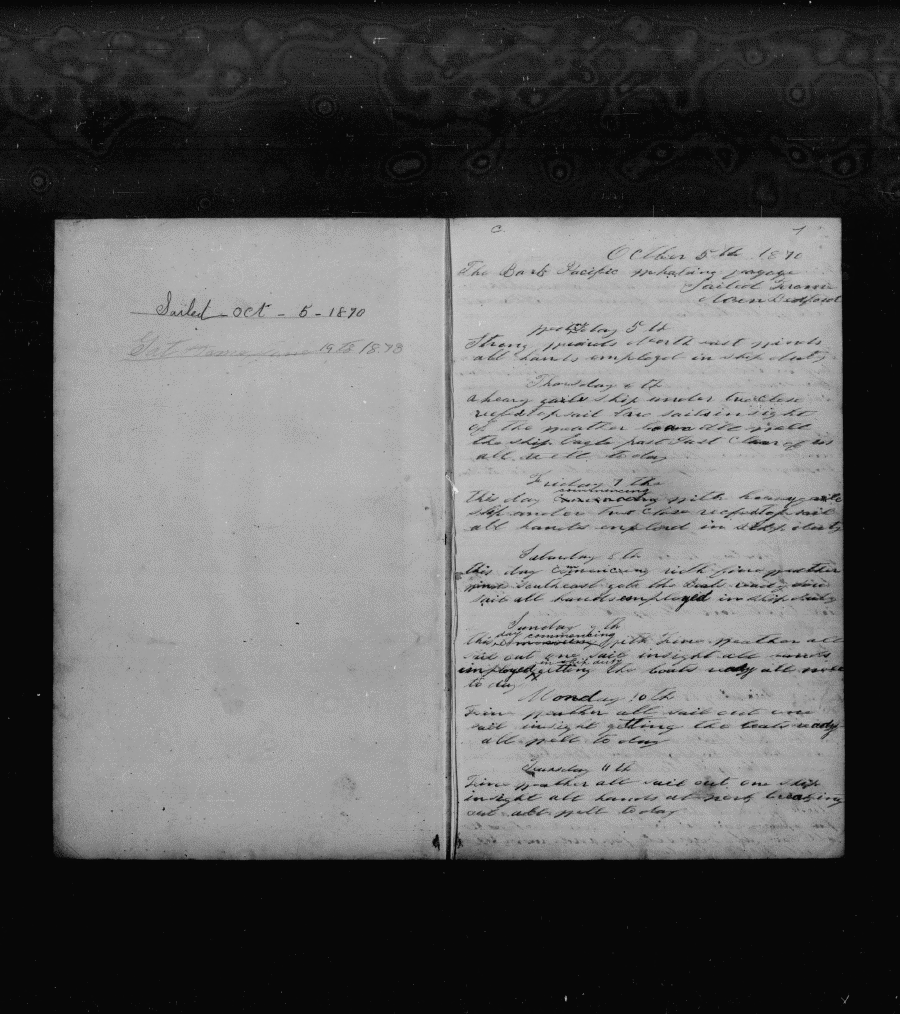 Sailed - Oct - 5 - 1870
Got Home June 19th 1873
C. 1
October 5th 1870
The Bark Pacific whaling voyage
Sailed From
New Bedford
wedsday 5 th
Strong North east winds
all hands employed in ship duty
Thursday 6 th
a heavy gaile ship under two close
reefed topsail two sails in sight
of the weather
the ship Eagle past Just of us
all well to day
Friday 7 the
commencing
this day with heavy gaile
ship under two close reefed topsail
all hands employed in ship duty
Saturday 8 th
this day commencing with fine weather
wind Southeast gote the boats ready one
sail all hands employed in ship duty
Sunday 9 th
day commencing
this with Fine weather all
sail out one sail insight all hands
in ship duty
employed getting the boats ready all well
to day
Monday 10 th
Fine weather all sail out one
sail insight getting the boats ready
all well to day
Tuesday 11 th
Fine weather all sail out one ship
insight all hands at work breaking
out all well to day